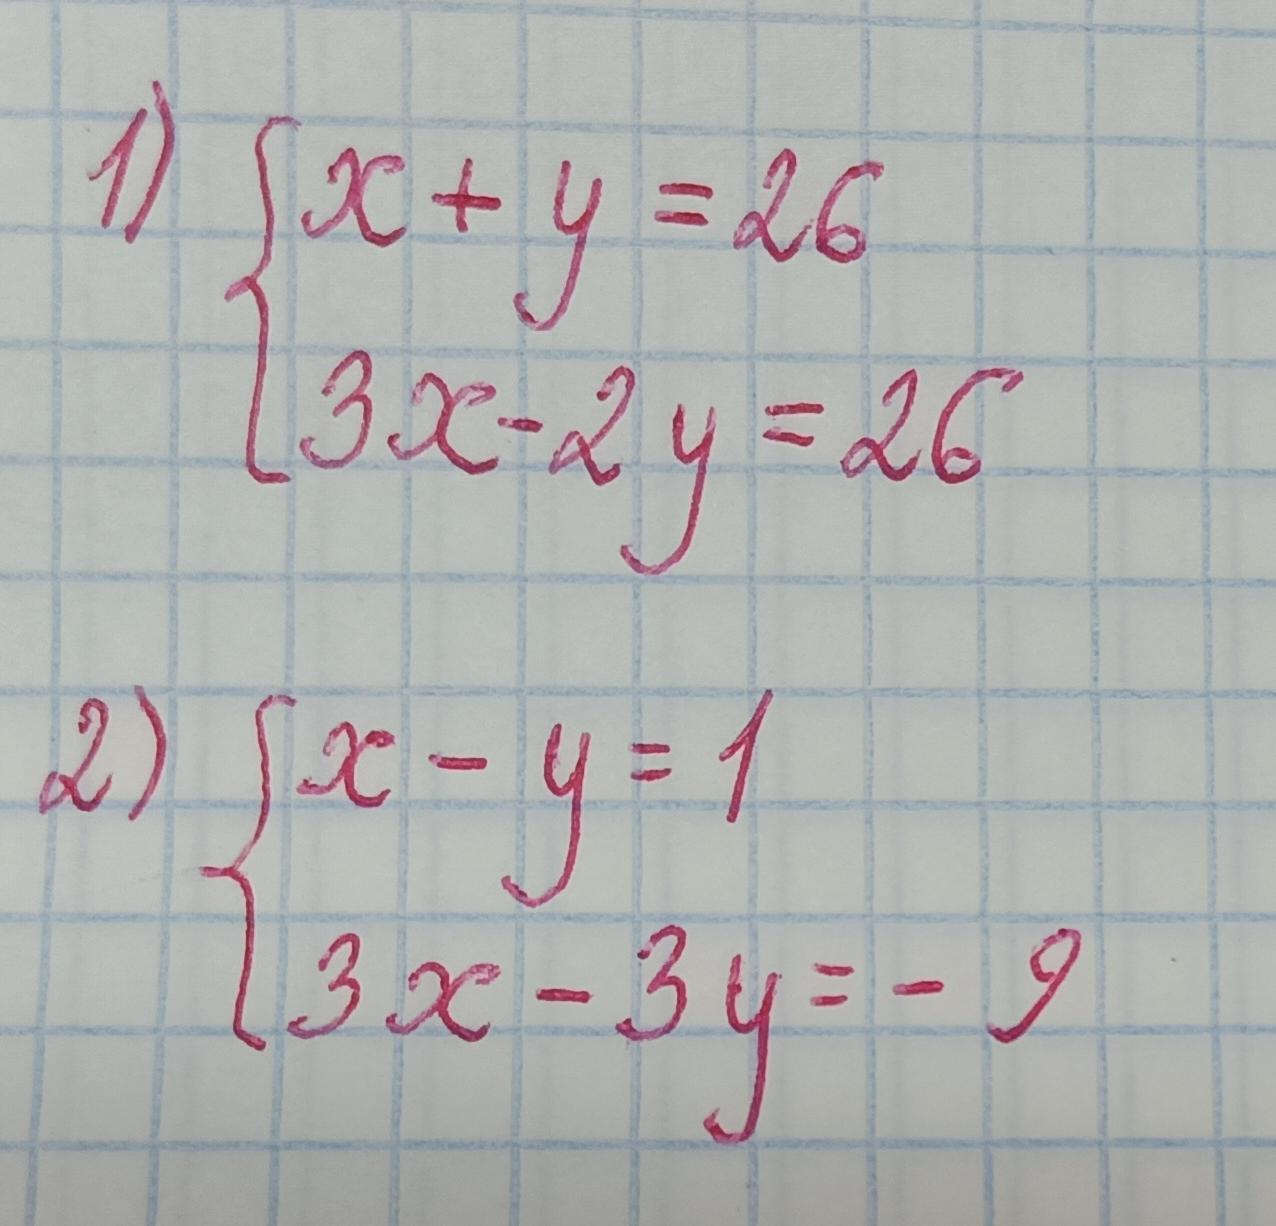 1) { x + y = 26
3x - 2y = 26
2) { x - y = 1
3x - 3y = - 9